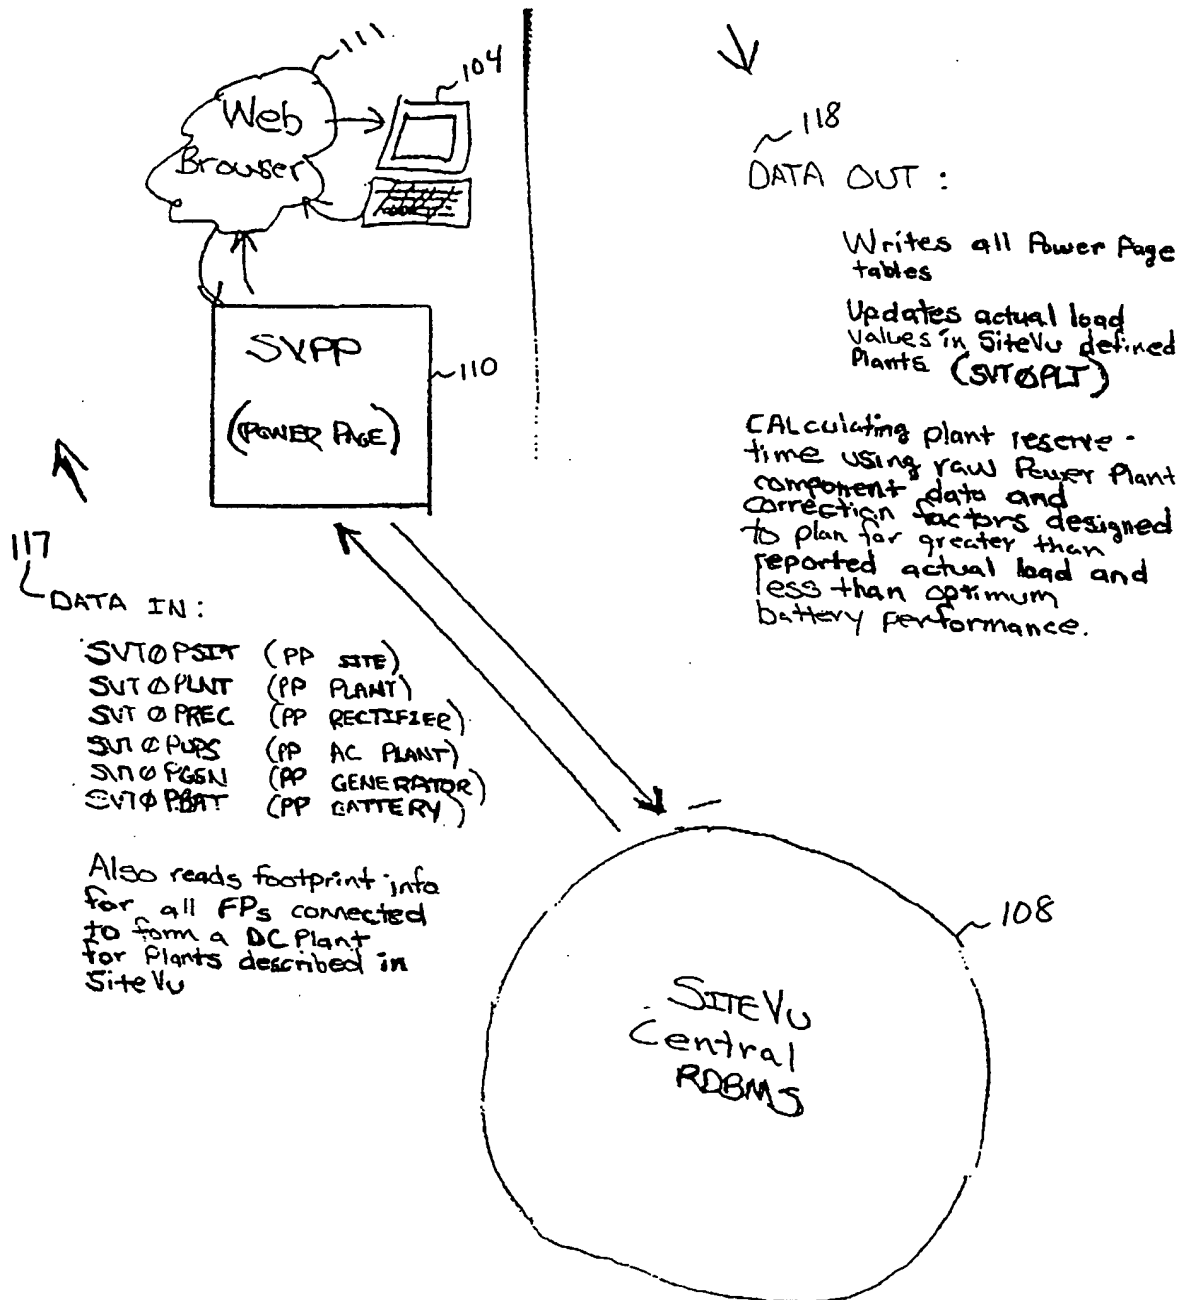 111
104
Web
Browser
SVPP
(POWER PAGE)
110
117
DATA IN:
SVTØPSIT (PP SITE)
SVTØPLNT (PP PLANT)
SVTØPREC (PP RECTIFIER)
SVTØPUPS (PP AC PLANT)
SVTØPGEN (PP GENERATOR)
SVTØPBAT (PP BATTERY)
Also reads footprint info
for all FPs connected
to form a DC Plant
for Plants described in
SiteVu
118
DATA OUT:
Writes all Power Page
tables
Updates actual load
values in SiteVu defined
Plants (SVTØPLT)
CALculating plant reserve-
time using raw Power Plant
component data and
correction factors designed
to plan for greater than
reported actual load and
less than optimum
battery performance.
108
SITEVU
Central
RDBMS